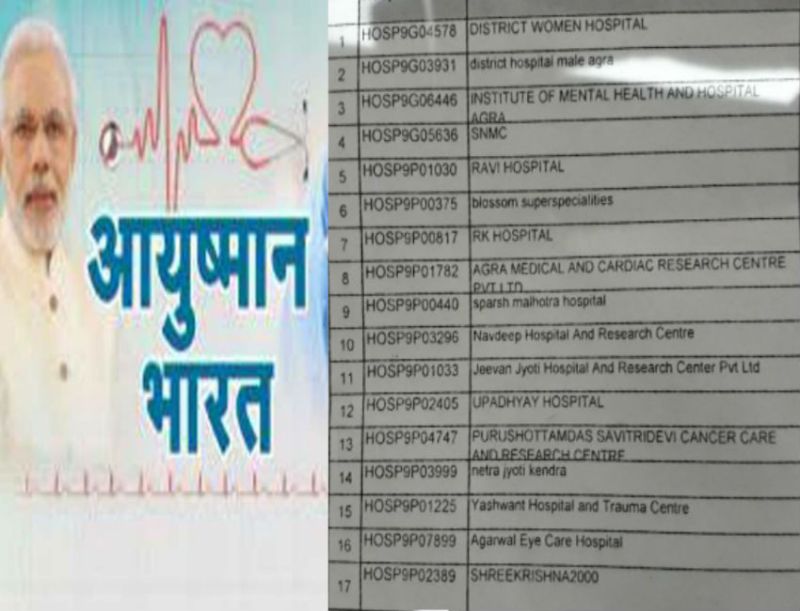 आयुष्मान
भारत
1 HOSP9G04578 DISTRICT WOMEN HOSPITAL
2 HOSP9G03931 district hospital male agra
3 HOSP9G06446 INSTITUTE OF MENTAL HEALTH AND HOSPITAL
AGRA
4 HOSP9G05636 SNMC
5 HOSP9P01030 RAVI HOSPITAL
6 HOSP9P00375 blossom superspecialities
7 HOSP9P00817 RK HOSPITAL
8 HOSP9P01782 AGRA MEDICAL AND CARDIAC RESEARCH CENTRE
PVT LTD
9 HOSP9P00440 sparsh malhotra hospital
10 HOSP9P03296 Navdeep Hospital And Research Centre
11 HOSP9P01033 Jeevan Jyoti Hospital And Research Center Pvt Ltd
12 HOSP9P02405 UPADHYAY HOSPITAL
13 HOSP9P04747 PURUSHOTTAMDAS SAVITRIDEVI CANCER CARE
AND RESEARCH CENTRE
14 HOSP9P03999 netra jyoti kendra
15 HOSP9P01225 Yashwant Hospital and Trauma Centre
16 HOSP9P07899 Agarwal Eye Care Hospital
17 HOSP9P02389 SHREEKRISHNA2000